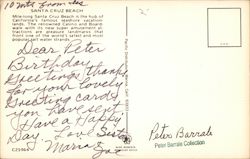 10 mts from sea
SANTA CRUZ BEACH
Mile-long Santa Cruz Beach is the hub of
California's famous seashore vacation-
lands. The renowned Casino and Board-
walk with its new super amusement at-
tractions are pleasure landmarks that
front one of the world's safest and most
popular salt water strands.
Dear Peter
Birthday
Greetings Thanks
for your lovely
Greeting cards
you have sent
Have a Happy
Day Love
Maria
Peter Barrale
Peter Barrale Collection